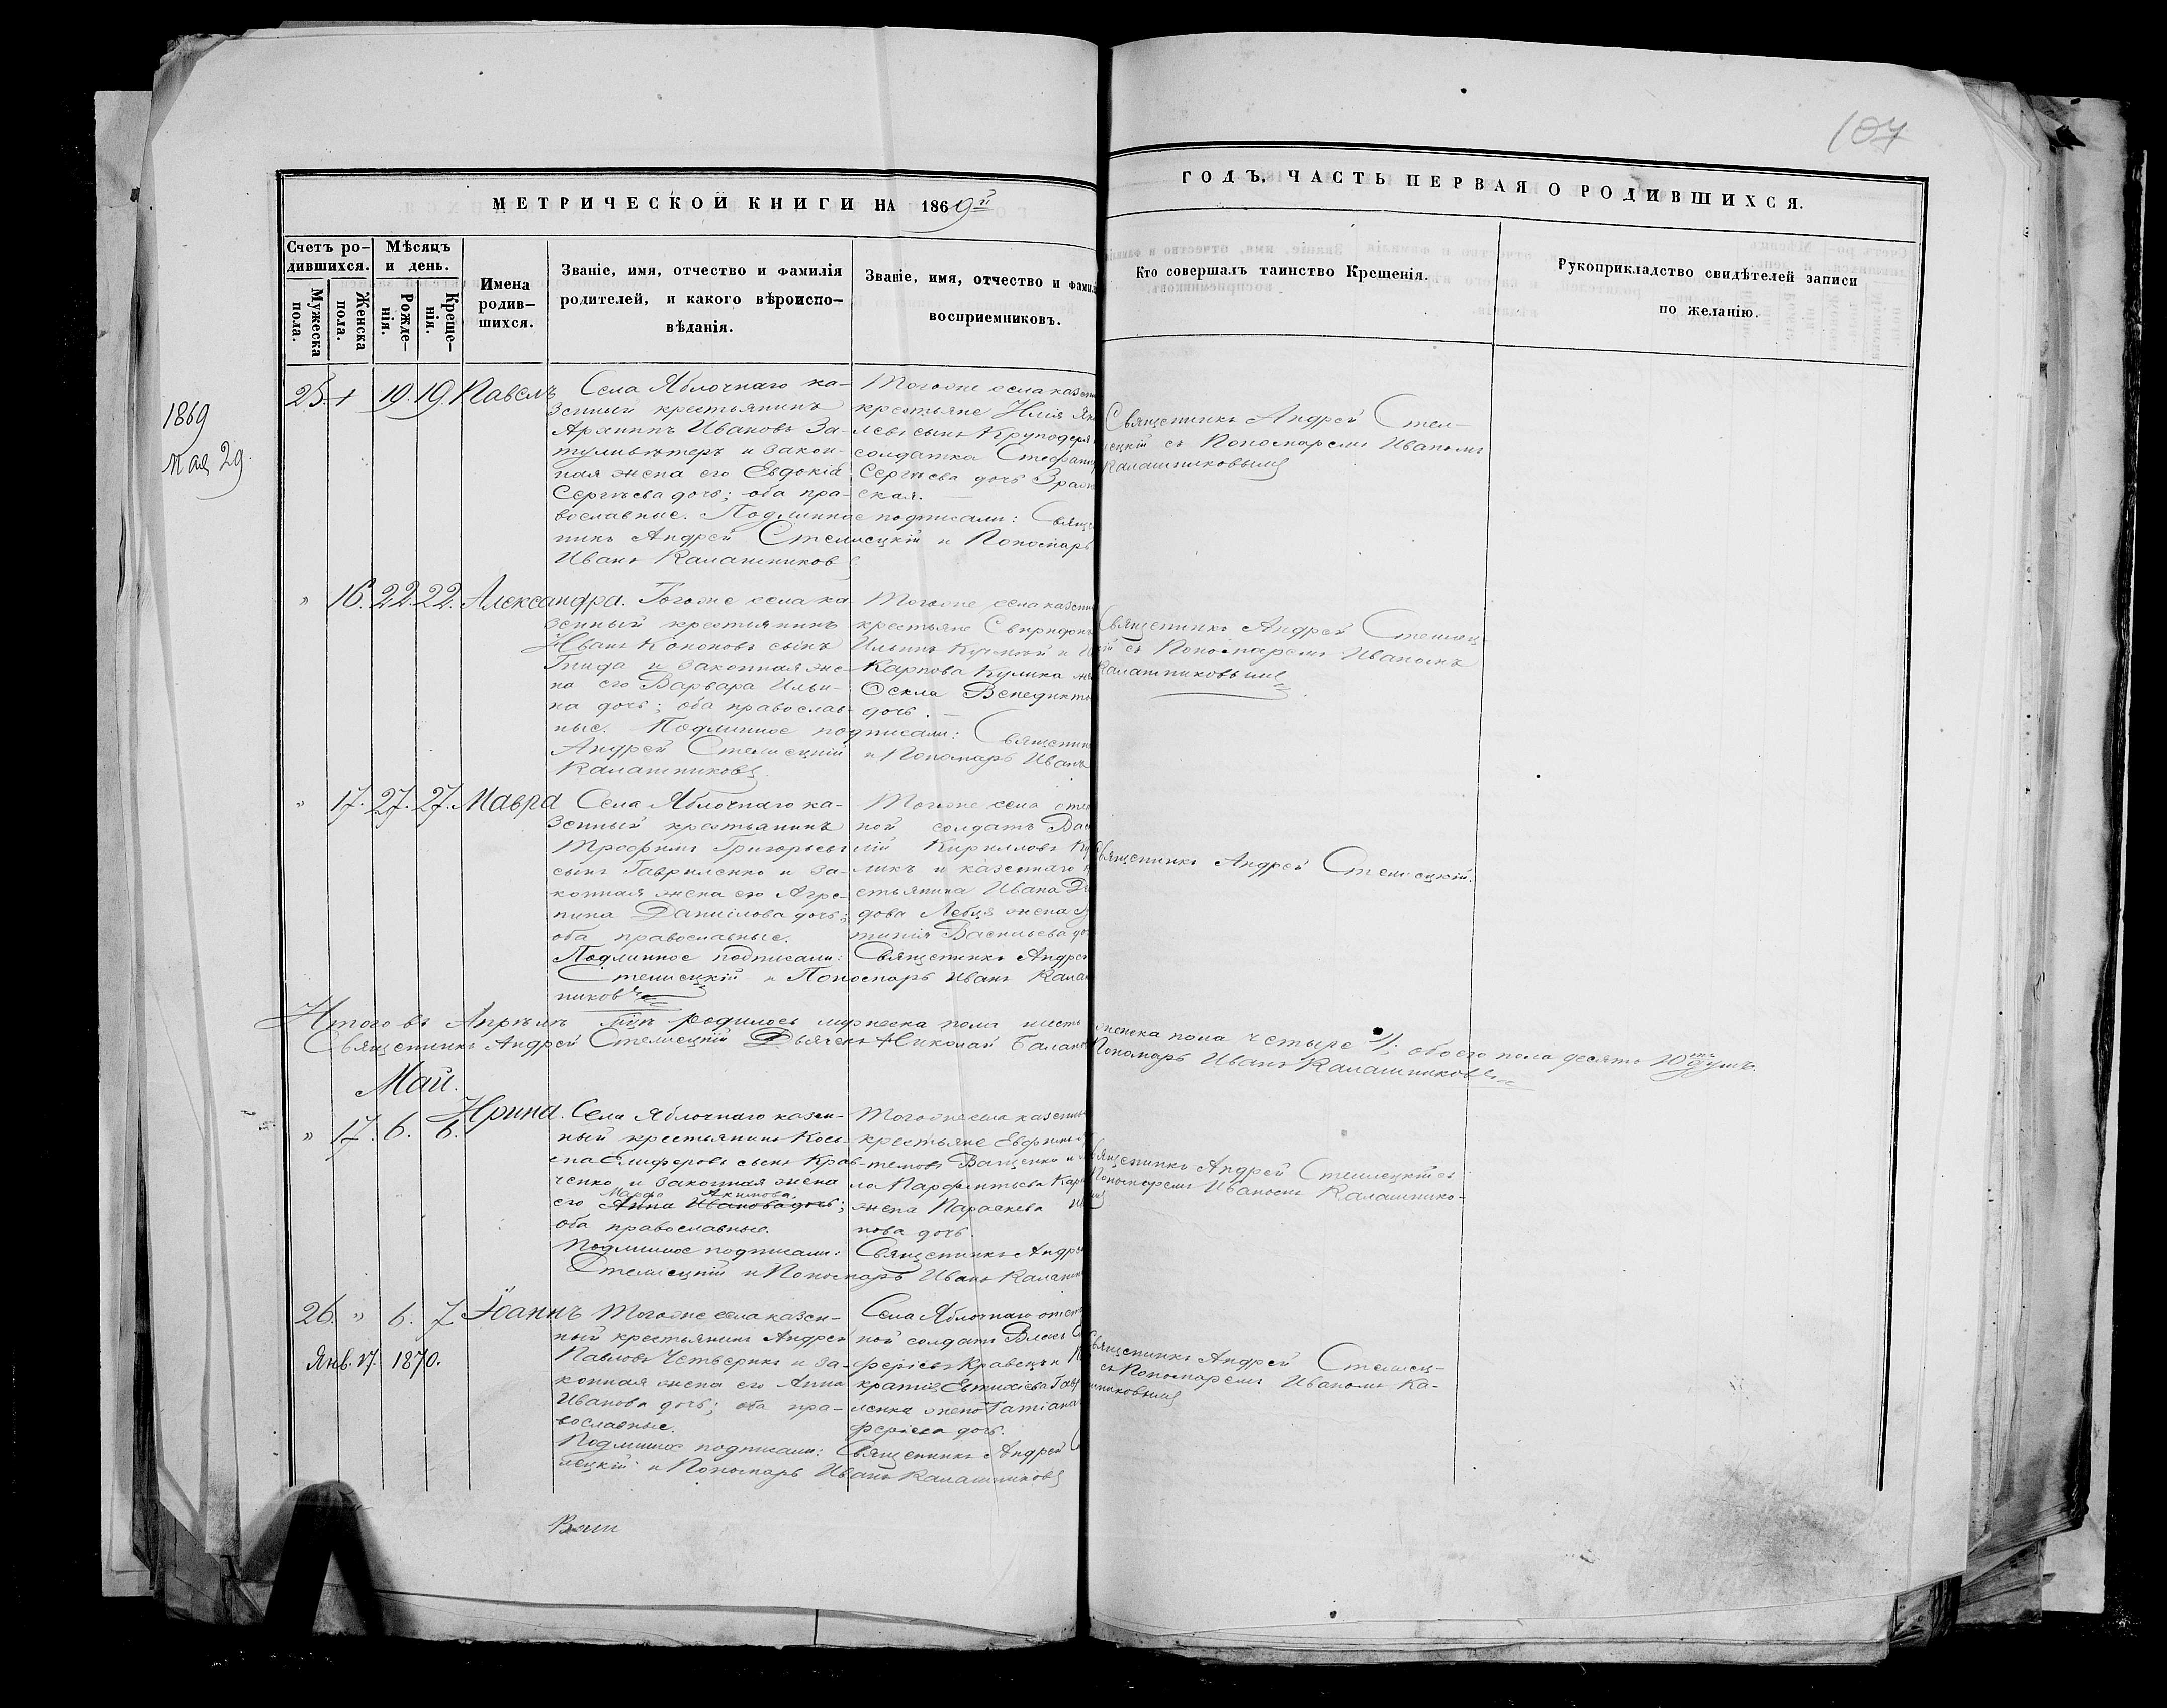 107
МЕТРИЧЕСКОЙ КНИГИ НА 1869й
ГОДЪ, ЧАСТЬ ПЕРВАЯ О РОДИВШИХСЯ.
Счетъ ро-
дившихся.
Мужеска
пола.
Женска
пола.
Мѣсяцъ
и день.
Рожде-
нія.
Креще-
нія.
Имена
родив-
шихся.
Званіе, имя, отчество и фамилія
родителей, и какого вѣроиспо-
вѣданія.
Званіе, имя, отчество и фамил
воспріемниковъ.
Кто совершалъ таинство Крещенія.
Рукоприкладство свидѣтелей записи
по желанію.
1869
мая 29.
25. 19. 19. Павелъ
Села Яблочнаго ка-
зенный крестьянинъ
Архипъ Ивановъ За-
туливѣтеръ и закон-
ная жена его Евдокія
Сергѣева дочь; оба пра-
вославные. Подлинное подписали: Свящ
никъ Андрей Стеллецкій и Пономарь
Иванъ Калашниковъ
Тогоже села казен
крестьяне Илія Як
левъ сынъ Круподеря
солдатка Стефани
Сергѣева дочь
ская.
Священникъ Андрей Стел-
ецкій съ Пономаремъ Иваномъ
Калашниковымъ
" 16. 22. 22. Александра.
Тогоже села ка
зенный крестьянинъ
Иванъ Кононовъ сынъ
Гнида и законная же-
на его Варвара Ильи-
на дочь; оба православ-
ные. Подлинное подписали: Священни
Андрей Стеллецкій и Пономарь Иванъ
Калашниковъ
Тогоже села казен
крестьяне Свиридонъ
Ильинъ
Карпова Кулика
Фекла Венедикто
дочь.
Священникъ Андрей Стеллец-
кій съ Пономаремъ Иваномъ
Калашниковымъ
" 17. 27. 27. Мавра
Села Яблочнаго ка-
зенный крестьянинъ
Трофимъ Григорьевъ
сынъ Гавриленко и за-
конная жена его Агре-
пина Даніилова дочь;
оба православные.
Подлинное подписали: Священникъ Андре
Стеллецкій и Пономарь Иванъ Кала
никовъ
Тогоже села отст
ной солдатъ Ва
лій Кирилловъ Ку
ликъ и казеннаго
стьянина Ивана
дова Лебця жена
тинія Васильева до
Священникъ Андрей Стеллецкій.
Итого въ Апрѣлѣ мцѣ родилось мужеска пола шесть женска пола четыре 4; обоего пола десять 10ть душъ.
Священникъ Андрей Стеллецкій Дьячекъ Николай Балан Пономарь Иванъ Калашниковъ
Май.
" 17. 6. 6. Ирина.
Села Яблочнаго казен-
ный крестьянинъ Кось-
ма Елиферовъ сынъ Крав-
ченко и законная жена
Марфа Акимова
его Анна Иванова дочь;
оба православные.
Подлинное подписали: Священникъ Андре
Стеллецкій и Пономарь Иванъ Калашн
Тогоже села казенны
крестьяне Евфимій
темовъ Ващенко и
ла Парфентьева Кар
жена Параскева
нова дочь.
вященникъ Андрей Стеллецкій съ
Пономаремъ Иваномъ Калашнико-
26. " 6. 7. Іоаннъ
Янв. 17. 1870.
Тогоже села казен-
ный крестьянинъ Андрей
Павловъ Четверикъ и за-
конная жена его Анна
Иванова дочь; оба пра-
вославные.
Подлинное подписали: Священникъ Андрей
лецкій и Пономарь Иванъ Калашниковъ
Села Яблочнаго отст
ной солдатъ Власъ
феріевъ Кравецъ и
кратія Евтихіева Гавр
ленка жена Татіана
феріева дочь.
Священникъ Андрей Стеллец-
съ Пономаремъ Иваномъ Ка-
шниковымъ